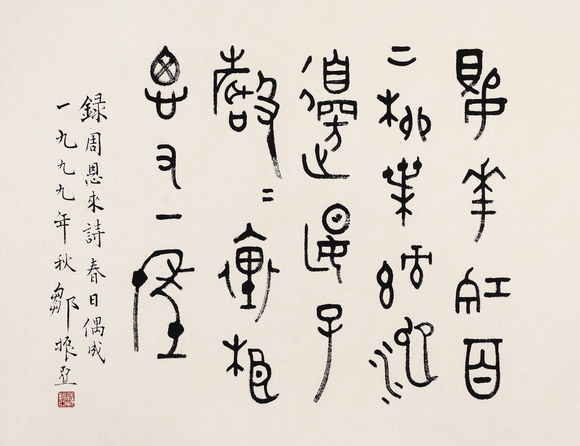 櫻華紅陌
上柳葉緑池
邊燕子
聲〻裏相
思又一年
録周恩來詩春日偶成
一九九九年秋鄒振亞